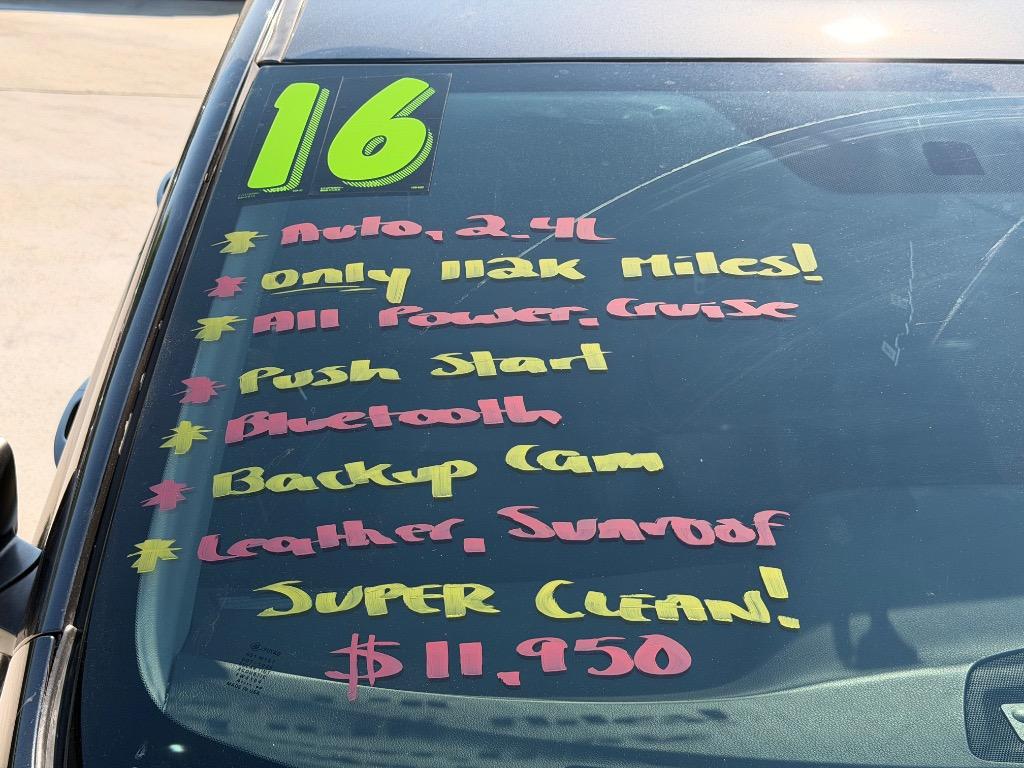 16
* Auto, 2.4L
* Only 112K Miles!
* All Power, Cruise
* Push Start
* Bluetooth
* Backup Cam
* Leather, Sunroof
SUPER CLEAN!
$11,950